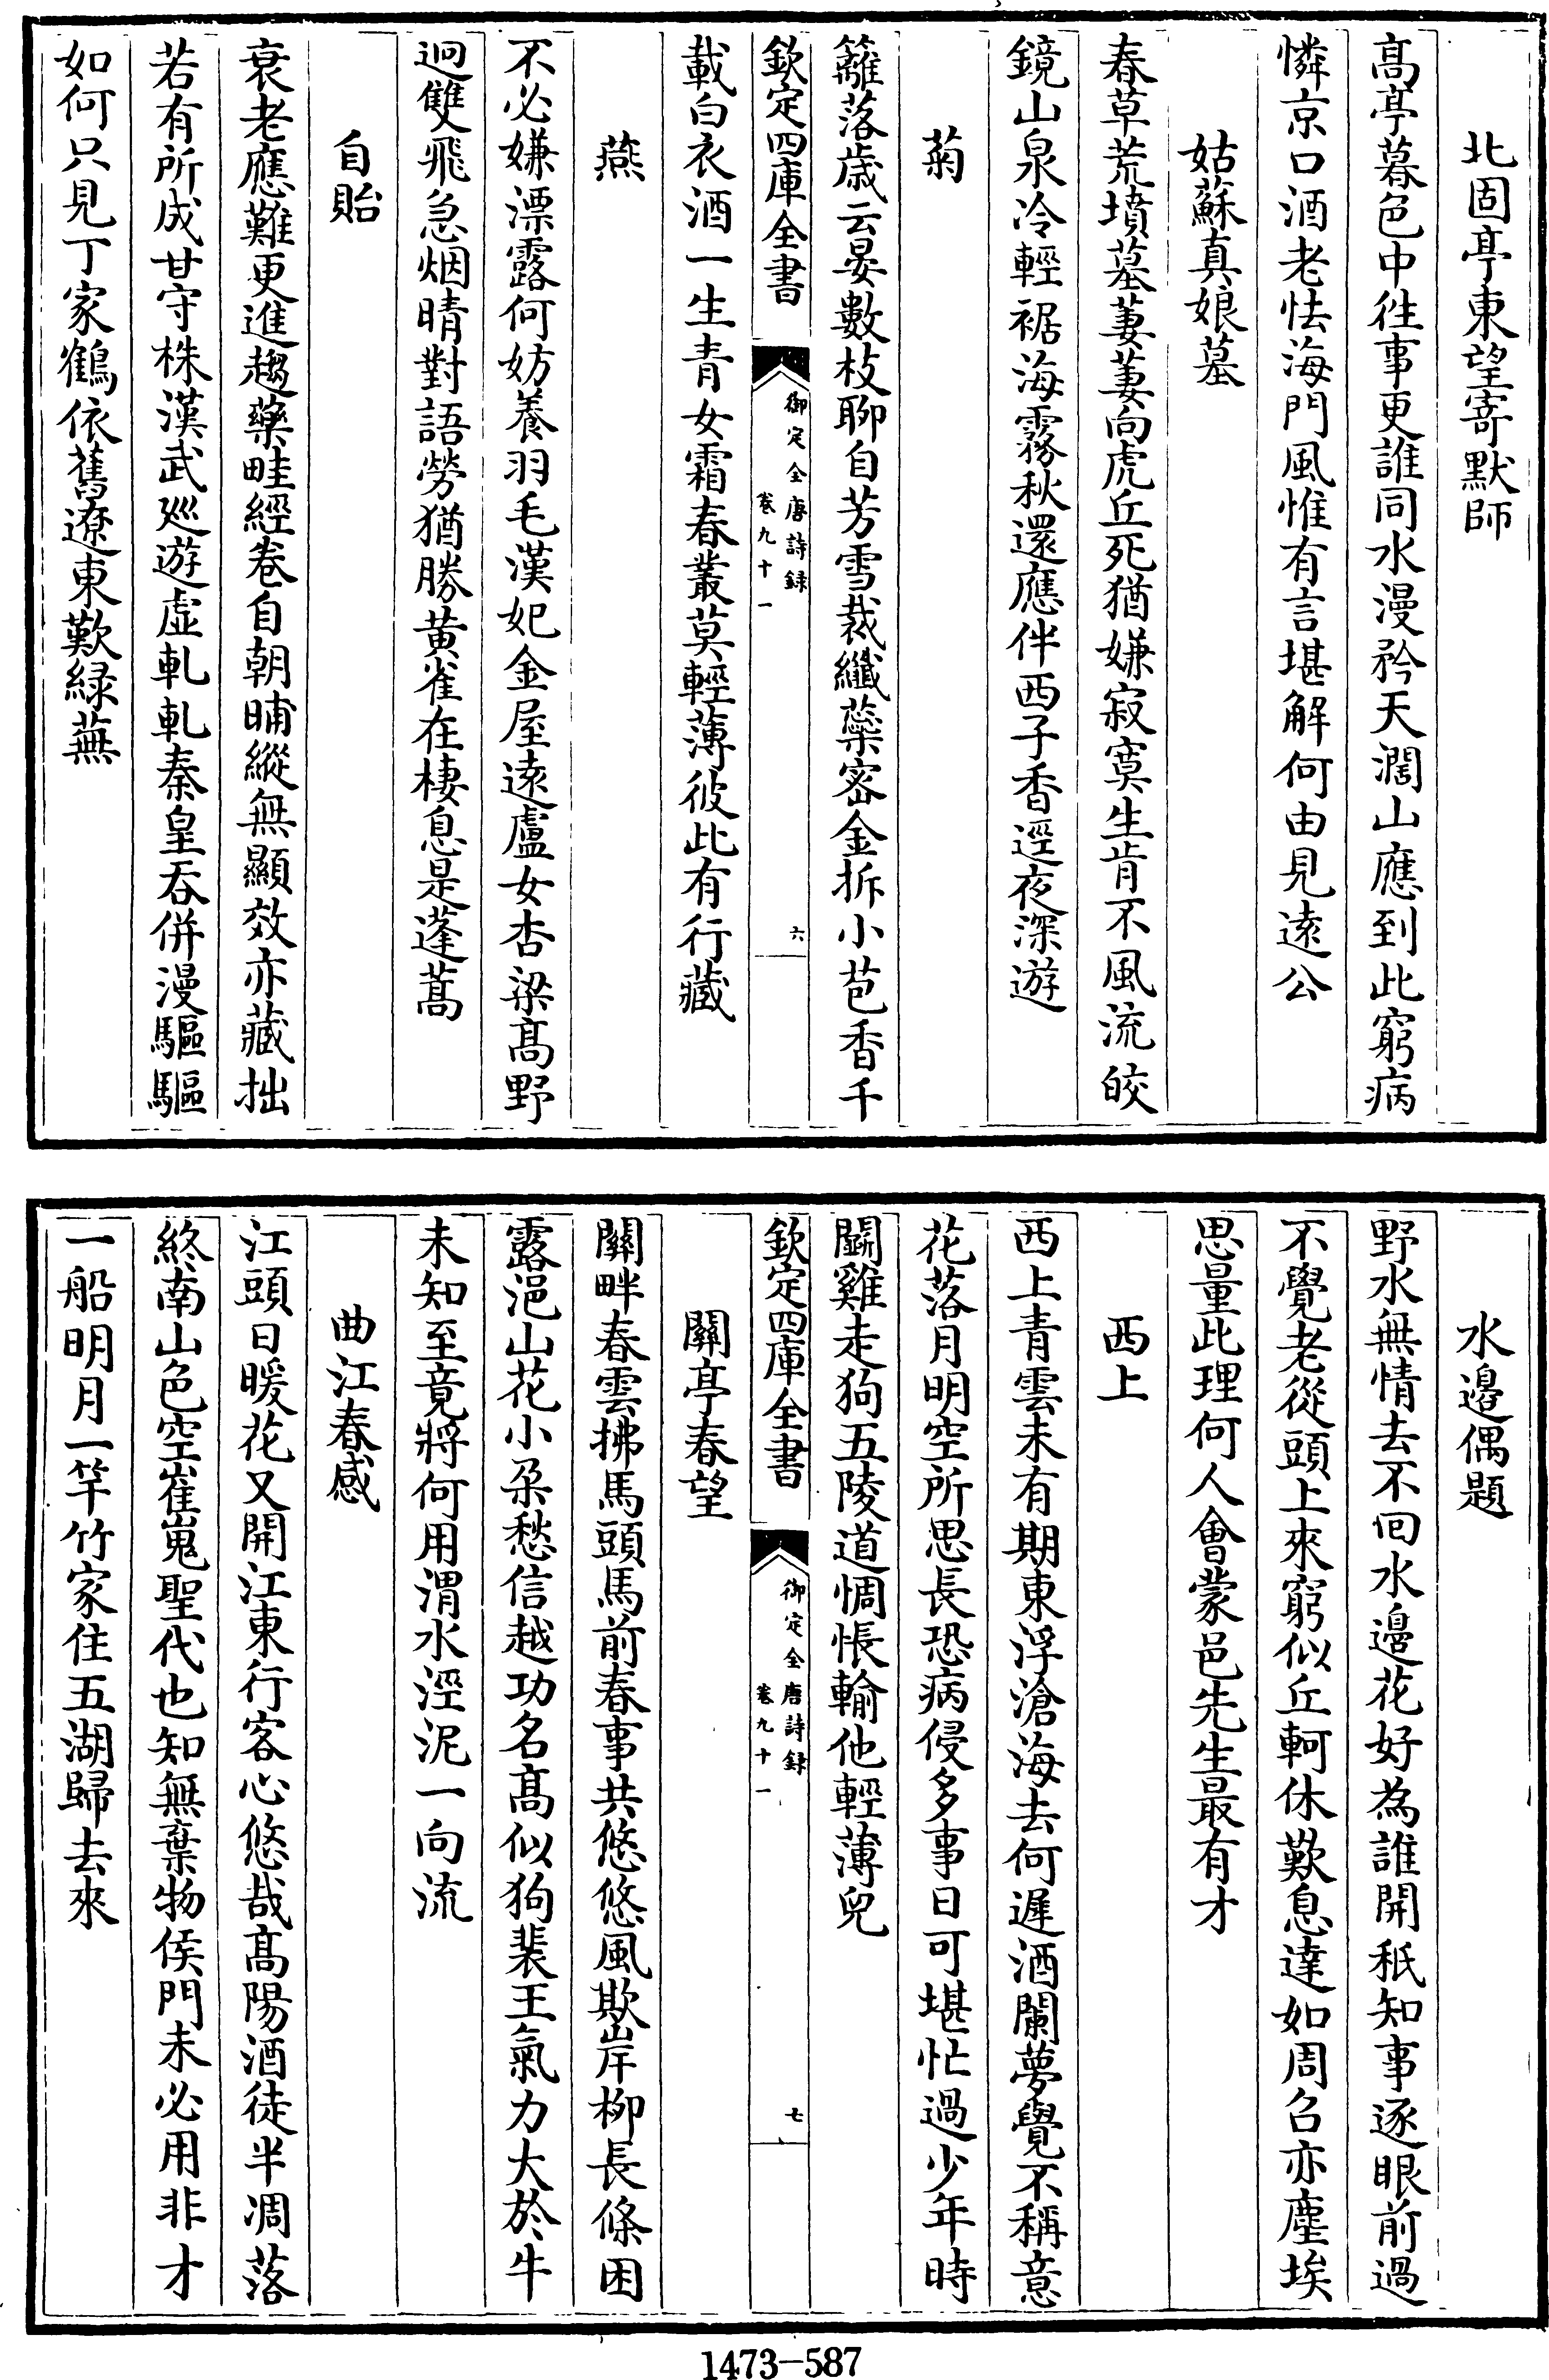 北固亭東望寄默師
高亭暮色中徃事更誰同水漫矜天濶山應到此窮病
憐京口酒老怯海門風惟有言堪解何由見逺公
姑蘇真娘墓
春草荒墳墓萋萋向虎丘死猶嫌寂寞生肯不風流皎
鏡山泉冷輕裾海霧秋還應伴西子香逕夜深遊
菊
籬落歳云晏數枝聊自芳雪裁纎蘂宻金拆小苞香千
欽定四庫全書
御定全唐詩録
卷九十一
六
載白衣酒一生青女霜春叢莫輕薄彼此有行藏
燕
不必嫌漂露何妨養羽毛漢妃金屋逺盧女杏梁髙野
迥雙飛急烟晴對語勞猶勝黄雀在棲息是蓬蒿
自貽
衰老應難更進趨藥畦經卷自朝晡縱無顯效亦藏拙
若有所成甘守株漢武廵遊虚軋軋秦皇吞併漫驅驅
如何只見丁家鶴依舊遼東歎緑蕪
水邉偶題
野水無情去不囘水邉花好為誰開秖知事逐眼前過
不覺老從頭上來窮似丘軻休歎息達如周召亦塵埃
思量此理何人會蒙邑先生最有才
西上
西上青雲未有期東浮滄海去何遲酒闌夢覺不稱意
花落月明空所思長恐病侵多事日可堪忙過少年時
鬬雞走狗五陵道惆悵輸他輕薄兒
欽定四庫全書
御定全唐詩録
卷九十一
七
關亭春望
關畔春雲拂馬頭馬前春事共悠悠風欺岸柳長條困
露浥山花小朶愁信越功名髙似狗裴王氣力大於牛
未知至竟將何用渭水涇泥一向流
曲江春感
江頭日暖花又開江東行客心悠哉髙陽酒徒半凋落
終南山色空崔嵬聖代也知無棄物侯門未必用非才
一船明月一竿竹家住五湖歸去來
1473-587